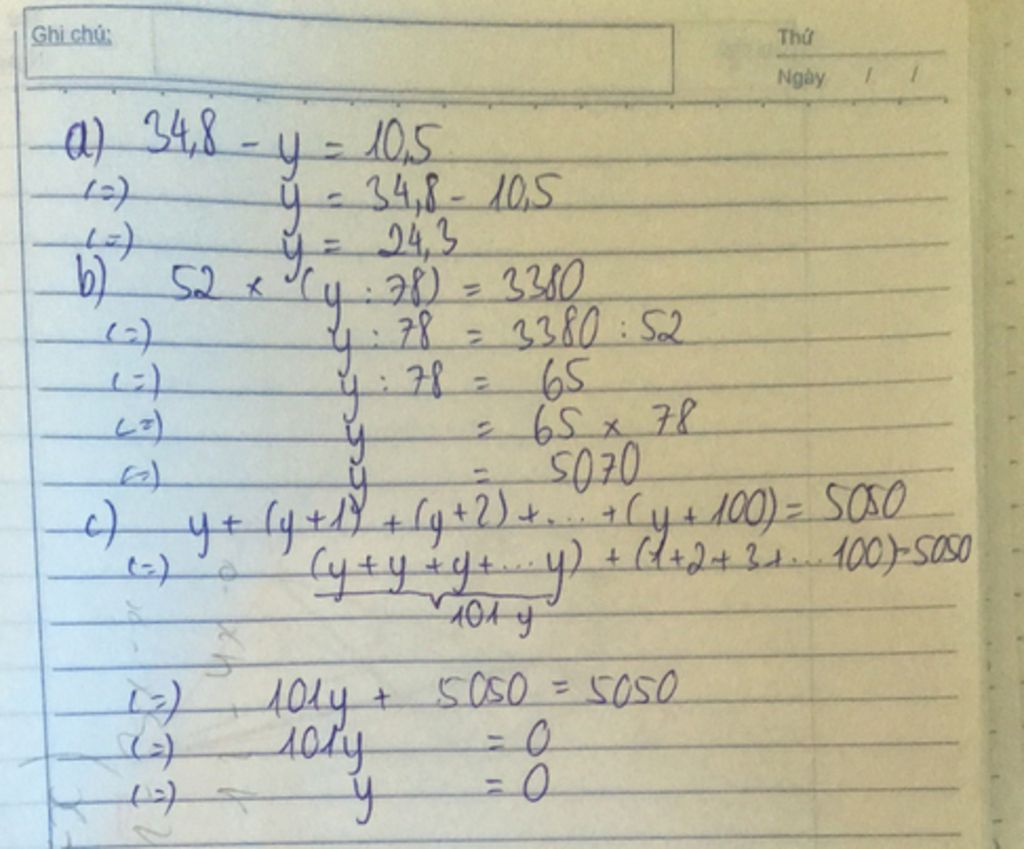 Ghi chú:
Thứ
Ngày / /
a) 34,8 - y = 10,5
(=) y = 34,8 - 10,5
(=) y = 24,3
b) 52 × (y : 78) = 3380
(=) y : 78 = 3380 : 52
(=) y : 78 = 65
(=) y = 65 × 78
(=) y = 5070
c) y + (y+1) + (y+2) + ... + (y + 100) = 5050
(=) (y + y + y + ... y) + (1+2+3+... 100) = 5050
101 y
(=) 101y + 5050 = 5050
(=) 101y = 0
(=) y = 0